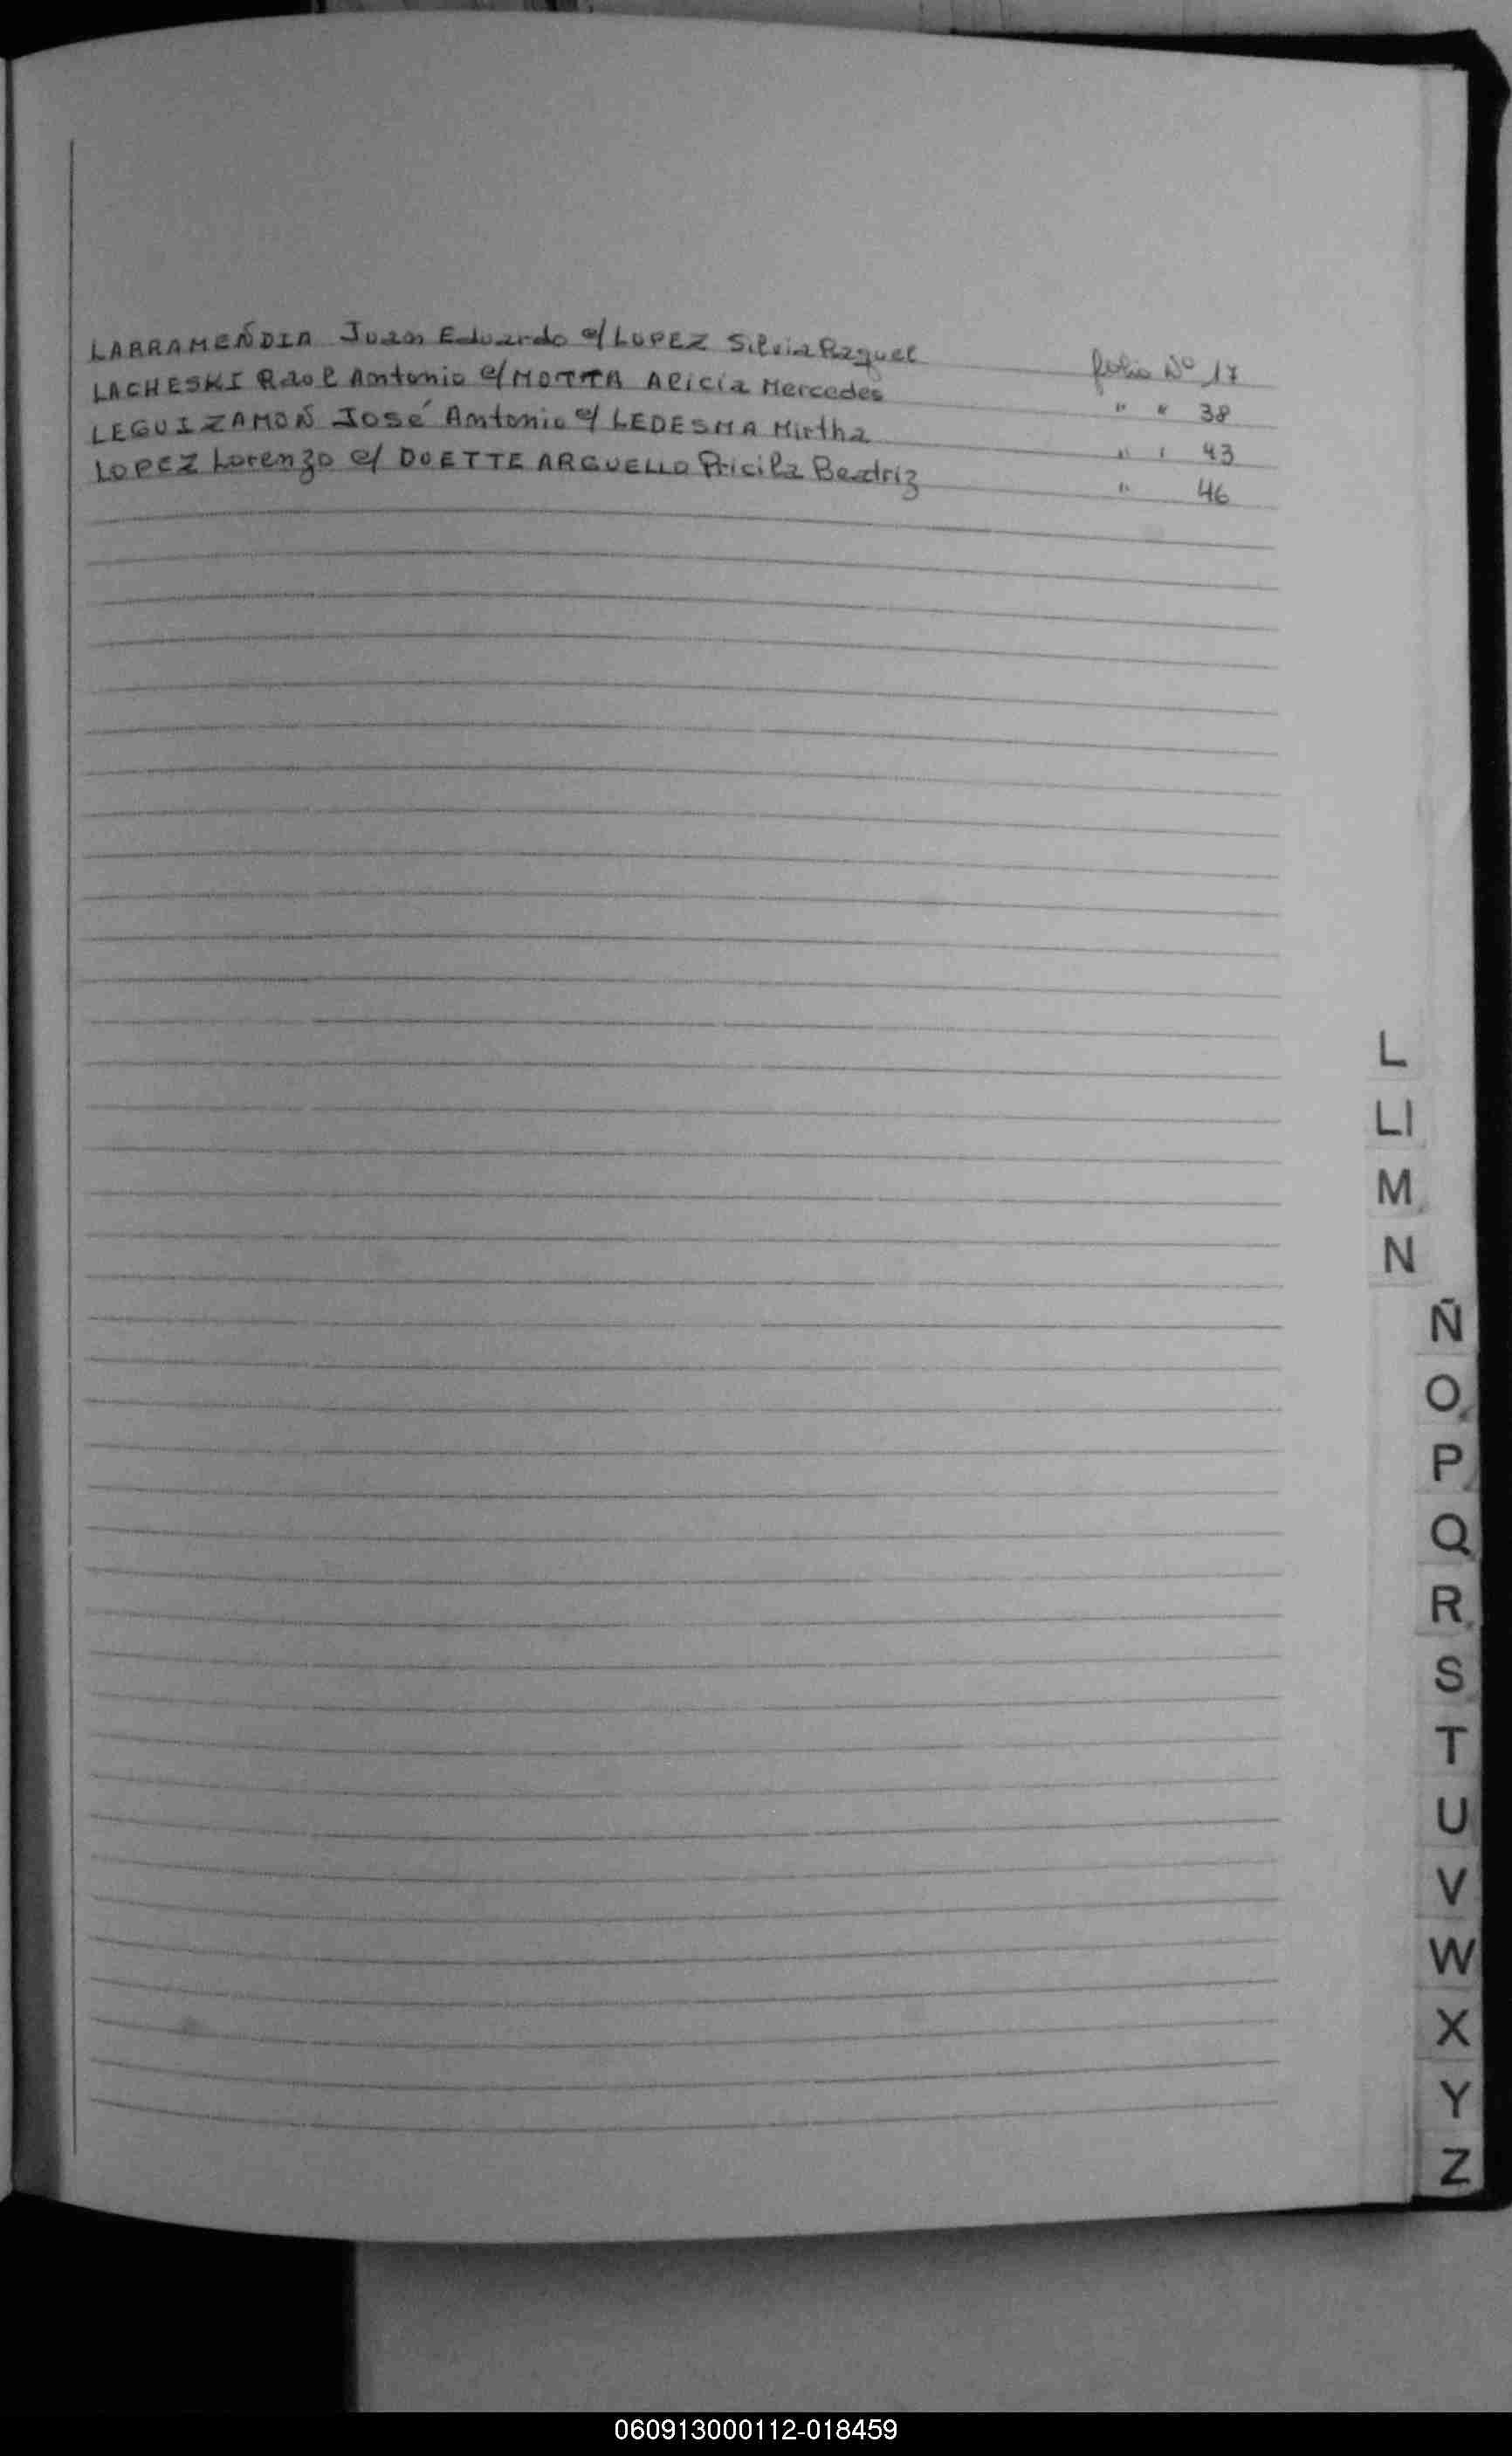 LARRAMEÑDIA Juan Eduardo c/ LOPEZ Silvia Raquel folio Nº 17
LACHESKI Raol Antonio c/ MOTTA Alicia Mercedes " " 38
LEGUIZAMOÑ José Antonio c/ LEDESMA Mirtha " " 43
LOPEZ Lorenzo c/ DUETTE ARGUELLO Pricila Beatriz " 46
L
Ll
M
N
Ñ
O
P
Q
R
S
T
U
V
W
X
Y
Z
060913000112-018459